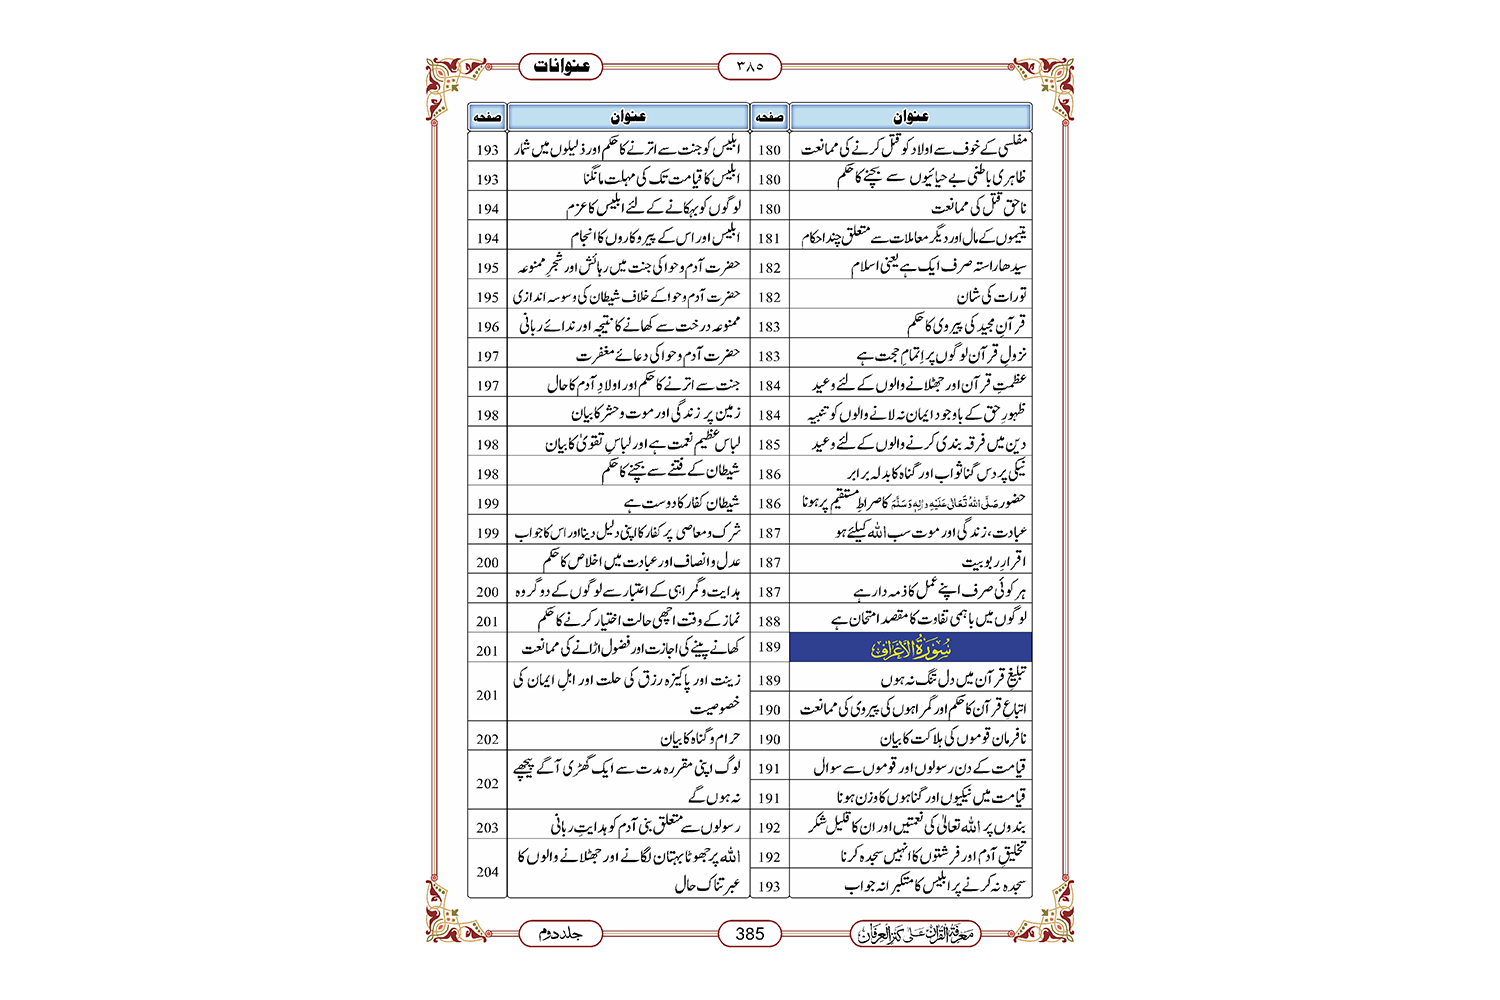 عنوانات
۳۸۵
عنوان
صفحہ
مفلسی کے خوف سے اولاد کو قتل کرنے کی ممانعت
180
ظاہری باطنی بے حیائیوں سے بچنے کا حکم
180
ناحق قتل کی ممانعت
180
یتیموں کے مال اور دیگر معاملات سے متعلق چند احکام
181
سیدھا راستہ صرف ایک ہے یعنی اسلام
182
تورات کی شان
182
قرآنِ مجید کی پیروی کا حکم
183
نزولِ قرآن لوگوں پر اِتمامِ حجت ہے
183
عظمتِ قرآن اور جھٹلانے والوں کے لئے وعید
184
ظہورِ حق کے باوجود ایمان نہ لانے والوں کو تنبیہ
184
دین میں فرقہ بندی کرنے والوں کے لئے وعید
185
نیکی پر دس گنا ثواب اور گناہ کا بدلہ برابر
186
حضور صَلَّی اللہُ تَعَالٰی عَلَیْہِ وَاٰلِہٖ وَسَلَّمَ کا صراطِ مستقیم پر ہونا
186
عبادت، زندگی اور موت سب اللہ کیلئے ہو
187
اقرارِ ربوبیت
187
ہر کوئی صرف اپنے عمل کا ذمہ دار ہے
187
لوگوں میں باہمی تفاوت کا مقصد امتحان ہے
188
سُوْرَۃُ الْاَعْرَاف
189
تبلیغِ قرآن میں دل تنگ نہ ہوں
189
اتباعِ قرآن کا حکم اور گمراہوں کی پیروی کی ممانعت
190
نافرمان قوموں کی ہلاکت کا بیان
190
قیامت کے دن رسولوں اور قوموں سے سوال
191
قیامت میں نیکیوں اور گناہوں کا وزن ہونا
191
بندوں پر اللہ تعالٰی کی نعمتیں اور ان کا قلیل شکر
192
تخلیقِ آدم اور فرشتوں کا انہیں سجدہ کرنا
192
سجدہ نہ کرنے پر ابلیس کا متکبرانہ جواب
193
عنوان
صفحہ
ابلیس کو جنت سے اترنے کا حکم اور ذلیلوں میں شمار
193
ابلیس کا قیامت تک کی مہلت مانگنا
193
لوگوں کو بہکانے کے لئے ابلیس کا عزم
194
ابلیس اور اس کے پیروکاروں کا انجام
194
حضرت آدم و حوا کی جنت میں رہائش اور شجرِ ممنوعہ
195
حضرت آدم و حوا کے خلاف شیطان کی وسوسہ اندازی
195
ممنوعہ درخت سے کھانے کا نتیجہ اور ندائے ربانی
196
حضرت آدم و حوا کی دعائے مغفرت
197
جنت سے اترنے کا حکم اور اولادِ آدم کا حال
197
زمین پر زندگی اور موت و حشر کا بیان
198
لباس عظیم نعمت ہے اور لباسِ تقویٰ کا بیان
198
شیطان کے فتنے سے بچنے کا حکم
198
شیطان کفار کا دوست ہے
199
شرک و معاصی پر کفار کا اپنی دلیل دینا اور اس کا جواب
199
عدل و انصاف اور عبادت میں اخلاص کا حکم
200
ہدایت و گمراہی کے اعتبار سے لوگوں کے دو گروہ
200
نماز کے وقت اچھی حالت اختیار کرنے کا حکم
201
کھانے پینے کی اجازت اور فضول اڑانے کی ممانعت
201
زینت اور پاکیزہ رزق کی حلت اور اہلِ ایمان کی
خصوصیت
201
حرام و گناہ کا بیان
202
لوگ اپنی مقررہ مدت سے ایک گھڑی آگے پیچھے
نہ ہوں گے
202
رسولوں سے متعلق بنی آدم کو ہدایتِ ربانی
203
اللہ پر جھوٹا بہتان لگانے اور جھٹلانے والوں کا
عبرتناک حال
204
معرفۃ القرآن علٰی کنز العرفان
385
جلد دوم